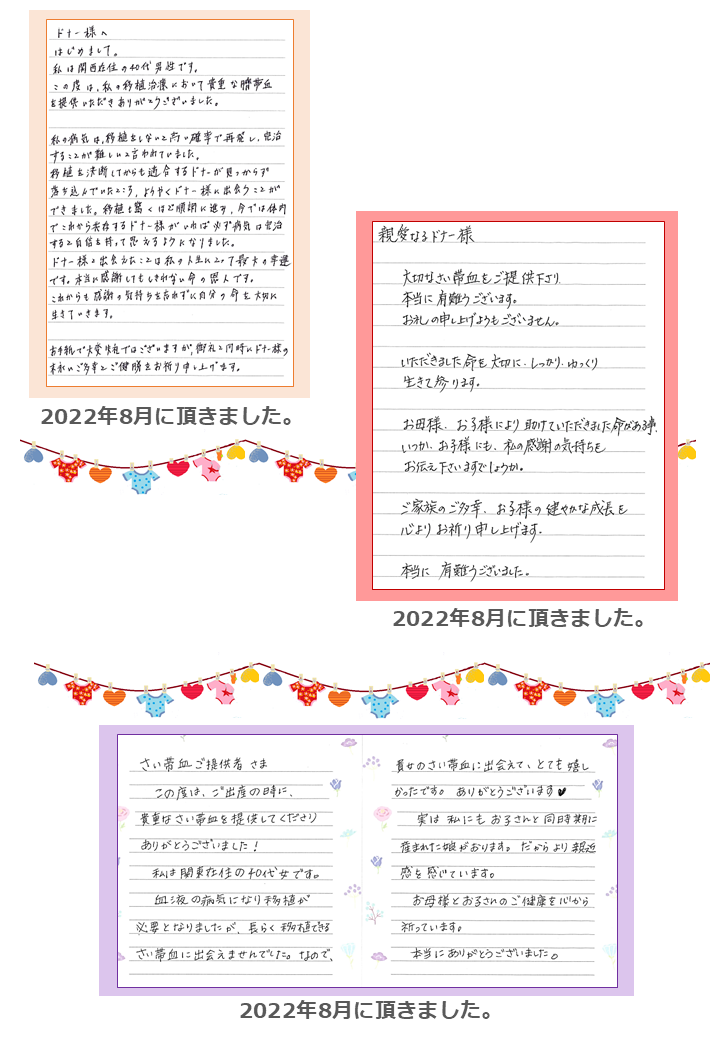 ドナー様へ
はじめまして。
私は関西在住の40代男性です。
この度は、私の移植治療において貴重な臍帯血
を提供いただきありがとうございました。
私の病気は、移植をしないと高い確率で再発し、完治
することが難しいと言われていました。
移植を決断してからも適合するドナーが見つからず
落ち込んでいたところ、ようやくドナー様に出会うことが
できました。移植も驚くほど順調に進み、今では体内
でこれから共存するドナー様がいれば必ず病気は完治
すると自信を持って思えるようになりました。
ドナー様と出会えたことは私の人生にとって最大の幸運
です。本当に感謝してもしきれない命の恩人です。
これからも感謝の気持ちを忘れずに自分の命を大切に
生きていきます。
お手紙で大変失礼ではございますが、御礼と同時にドナー様の
末永いご多幸とご健勝をお祈り申し上げます。
2022年8月に頂きました。
親愛なるドナー様
大切なさい帯血をご提供下さり
本当に有難うございます。
お礼の申し上げようもございません。
いただきました命を大切に、しっかり、ゆっくり
生きて参ります。
お母様、お子様により助けていただきました命がある事、
いつか、お子様にも、私の感謝の気持ちを
お伝え下さいますでしょうか。
ご家族のご多幸、お子様の健やかな成長を
心よりお祈り申し上げます。
本当に有難うございました。
2022年8月に頂きました。
さい帯血ご提供者さま
この度は、ご出産の時に、
貴重なさい帯血を提供してくださり
ありがとうございました!
私は関東在住の40代女です。
血液の病気になり移植が
必要となりましたが、長らく移植できる
さい帯血に出会えませんでした。なので、
貴女のさい帯血に出会えて、とても嬉し
かったです。ありがとうございます♥
実は私にもお子さんと同時期に
産まれた娘がおります。だからより親近
感を感じています。
お母様とお子さんのご健康を心から
祈っています。
本当にありがとうございました。
2022年8月に頂きました。